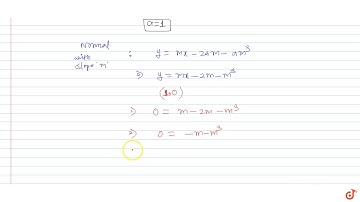 a=1
Normal with slope 'm' : y = mx - 2am - am³
⇒ y = mx - 2m - m³
(1,0)
⇒ 0 = m - 2m - m³
⇒ 0 = -m - m³